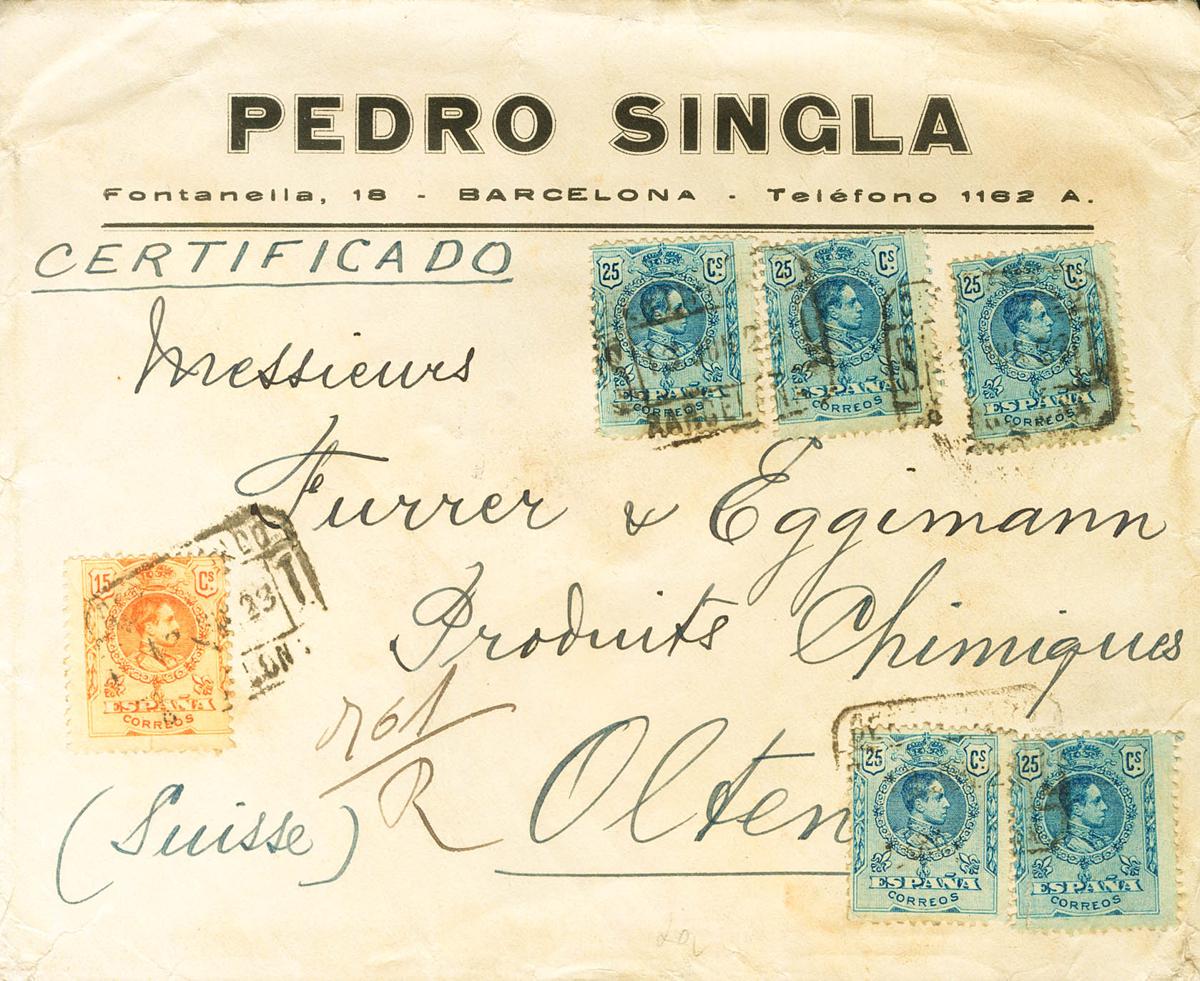 PEDRO SINGLA
Fontanella, 18 - BARCELONA - Teléfono 1162 A.
CERTIFICADO
25 Cs. ESPAÑA CORREOS
25 Cs. ESPAÑA CORREOS
25 Cs. ESPAÑA CORREOS
Messieurs
Furrer & Eggimann
Produits Chimiques
15 Cs ESPAÑA CORREOS
23
701
R
Olten
(Suisse)
25 Cs. ESPAÑA CORREOS
25 Cs. ESPAÑA CORREOS